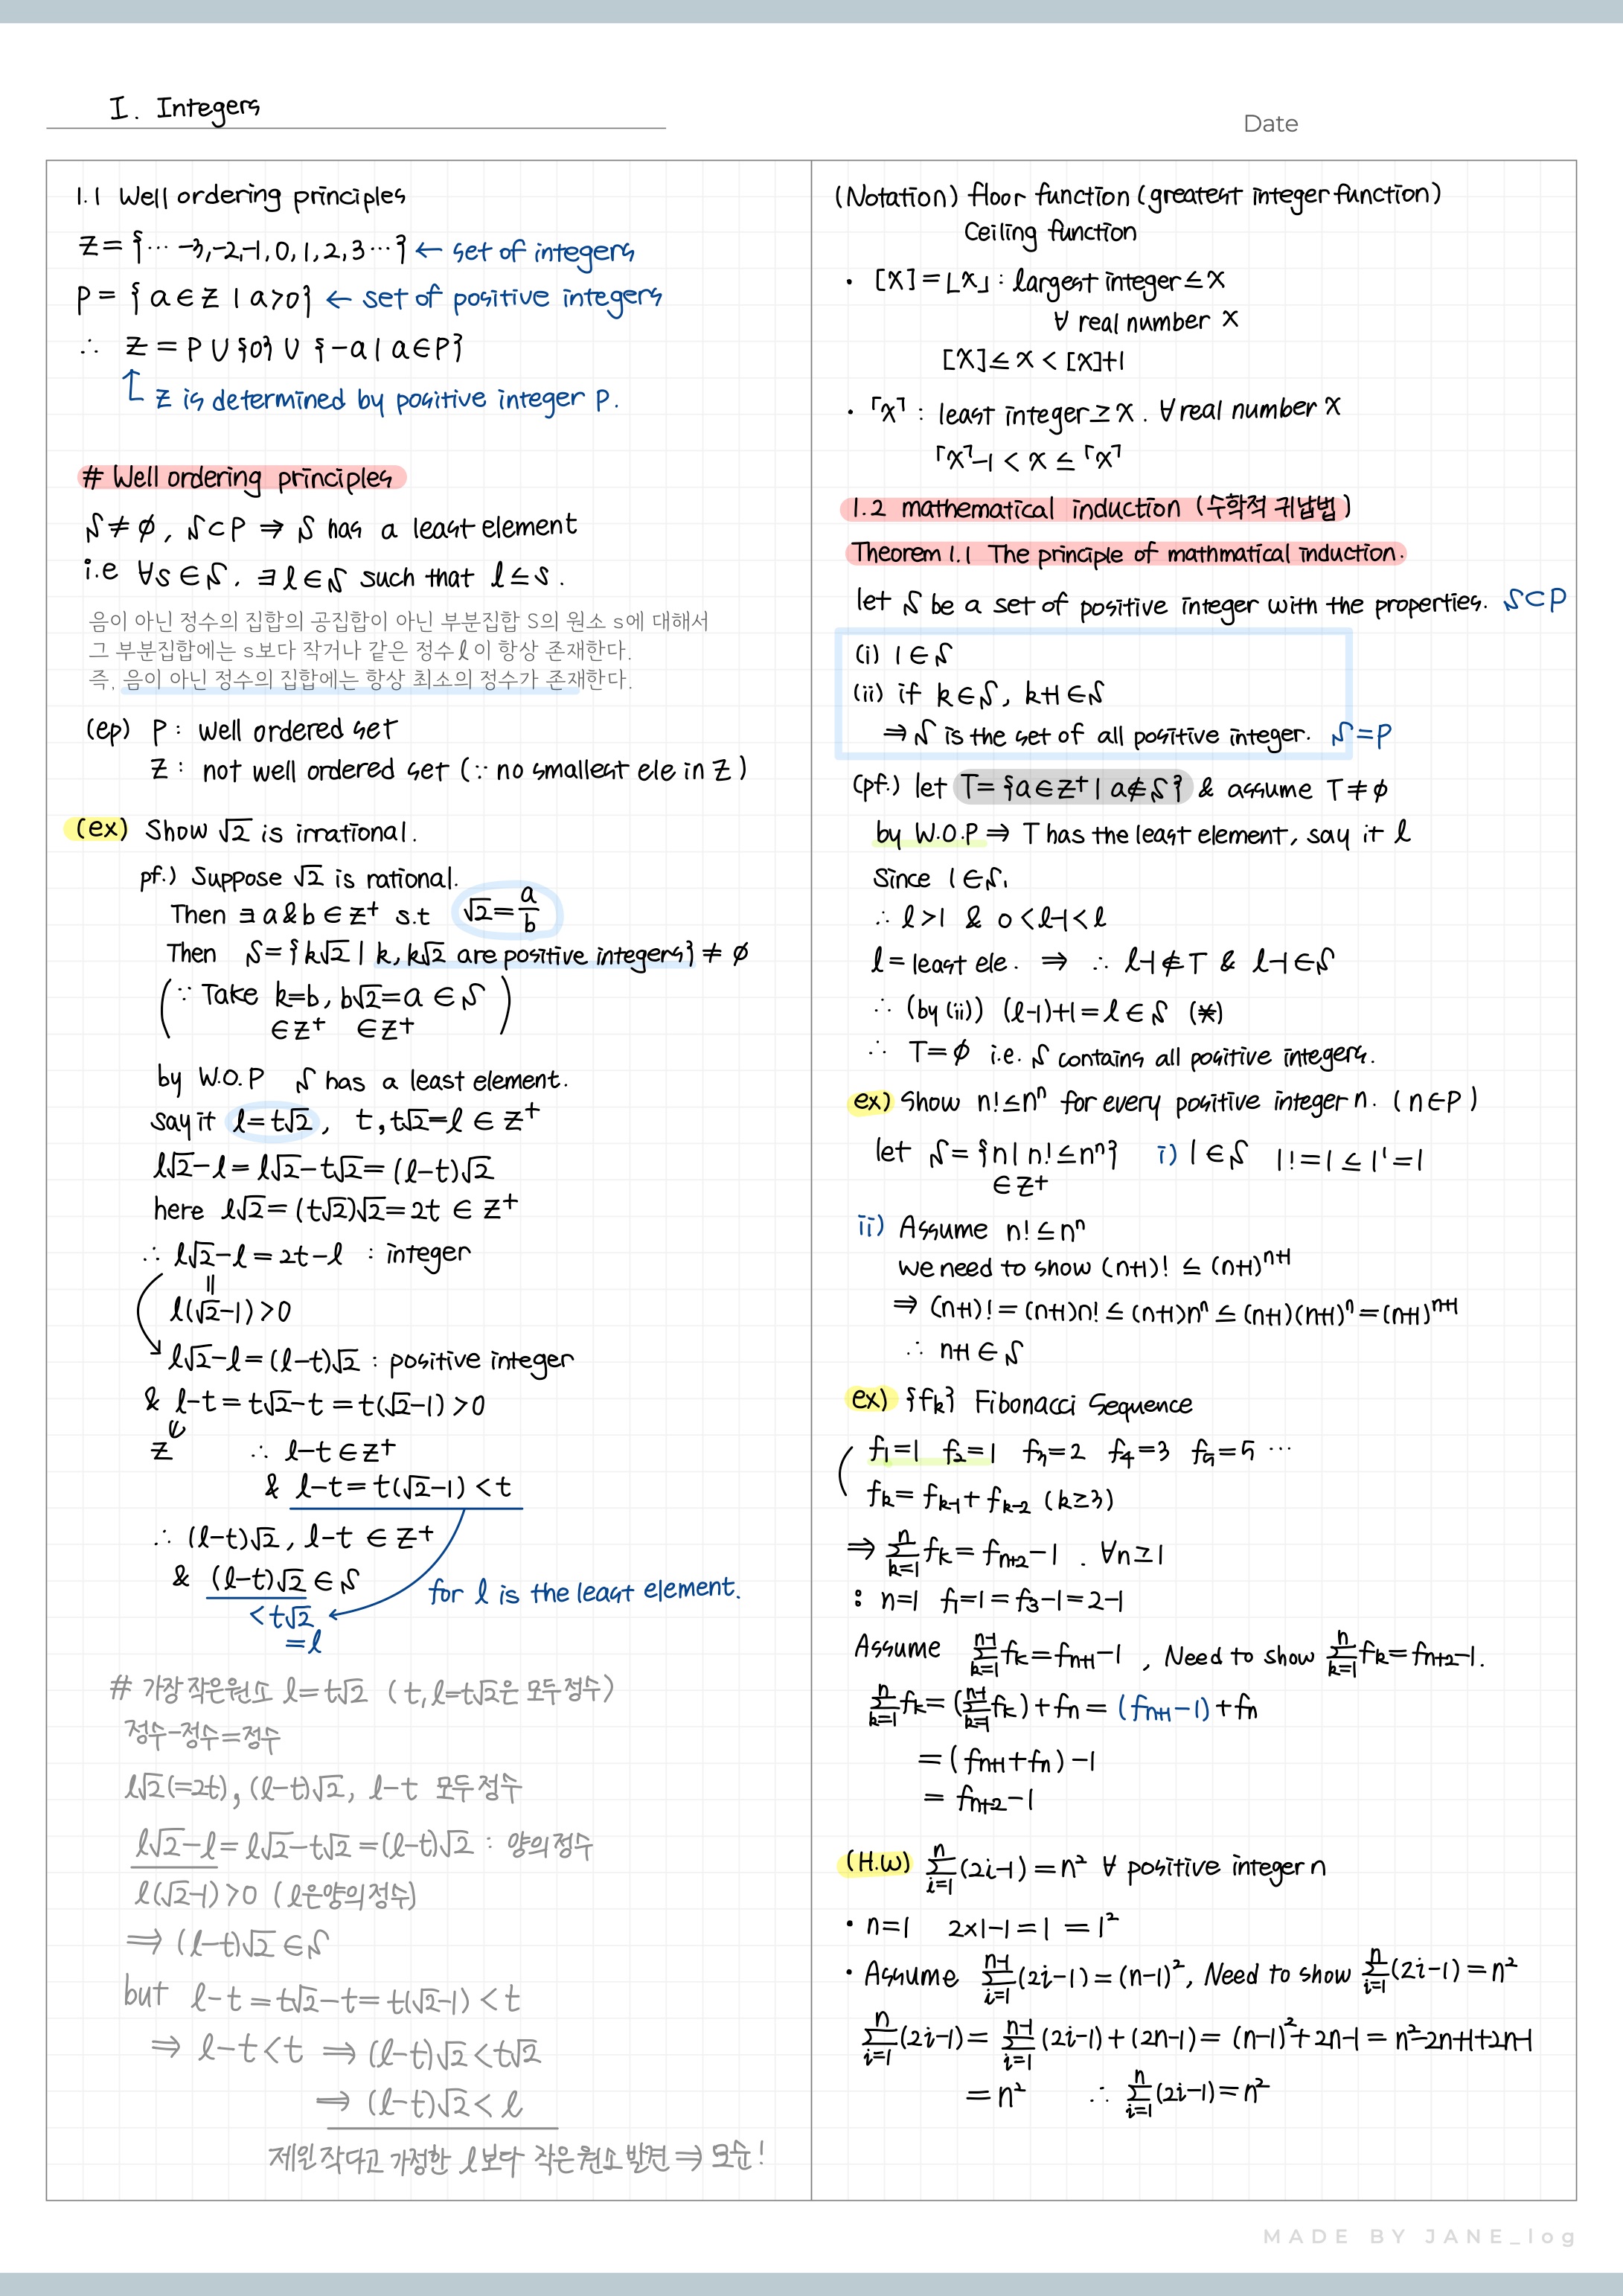 I. Integers
Date
1.1 Well ordering principles
Z = {… -3, -2, -1, 0, 1, 2, 3 …} ← set of integers
P = { a ∈ Z | a>0} ← set of positive integers
∴ Z = P ∪ {0} ∪ {-a | a ∈ P}
Z is determined by positive integer P.
# Well ordering principles
S ≠ ∅, S ⊂ P ⇒ S has a least element
i.e ∀s ∈ S. ∃ℓ ∈ S such that ℓ ≤ s.
음이 아닌 정수의 집합의 공집합이 아닌 부분집합 S의 원소 s에 대해서
그 부분집합에는 s보다 작거나 같은 정수 ℓ이 항상 존재한다.
즉, 음이 아닌 정수의 집합에는 항상 최소의 정수가 존재한다.
(ep) P : well ordered set
Z : not well ordered set (∵ no smallest ele in Z)
(ex) Show √2 is irrational.
pf.) Suppose √2 is rational.
Then ∃ a & b ∈ Z⁺ s.t √2 = a/b
Then S = {k√2 | k, k√2 are positive integers} ≠ ∅
(∵ Take k=b, b√2 = a ∈ S)
∈ Z⁺ ∈ Z⁺
by W.O.P S has a least element.
say it ℓ = t√2, t, t√2 = ℓ ∈ Z⁺
ℓ√2 - ℓ = ℓ√2 - t√2 = (ℓ-t)√2
here ℓ√2 = (t√2)√2 = 2t ∈ Z⁺
∴ ℓ√2 - ℓ = 2t - ℓ : integer
=
ℓ(√2-1) > 0
ℓ√2 - ℓ = (ℓ-t)√2 : positive integer
& ℓ-t = t√2 - t = t(√2-1) > 0
Z ∴ ℓ-t ∈ Z⁺
& ℓ-t = t(√2-1) < t
∴ (ℓ-t)√2, ℓ-t ∈ Z⁺
& (ℓ-t)√2 ∈ S
for ℓ is the least element.
< t√2
= ℓ
# 가장 작은 원소 ℓ = t√2 (t, ℓ=t√2은 모두 정수)
정수-정수=정수
ℓ√2(=2t), (ℓ-t)√2, ℓ-t 모두 정수
ℓ√2 - ℓ = ℓ√2 - t√2 = (ℓ-t)√2 : 양의 정수
ℓ(√2-1) > 0 (ℓ은 양의 정수)
⇒ (ℓ-t)√2 ∈ S
but ℓ-t = t√2 - t = t(√2-1) < t
⇒ ℓ-t < t ⇒ (ℓ-t)√2 < t√2
⇒ (ℓ-t)√2 < ℓ
제일 작다고 가정한 ℓ보다 작은 원소 발견 ⇒ 모순!
(Notation) floor function (greatest integer function)
Ceiling function
· [x] = ⌊x⌋ : largest integer ≤ x
∀ real number x
[x] ≤ x < [x]+1
· ⌈x⌉ : least integer ≥ x. ∀ real number x
⌈x⌉-1 < x ≤ ⌈x⌉
1.2 mathematical induction (수학적 귀납법)
Theorem 1.1 The principle of mathmatical induction.
let S be a set of positive integer with the properties. S ⊂ P
(i) 1 ∈ S
(ii) if k ∈ S, k+1 ∈ S
⇒ S is the set of all positive integer. S = P
(pf.) let T = {a ∈ Z⁺ | a ∉ S} & assume T ≠ ∅
by W.O.P ⇒ T has the least element, say it ℓ
Since 1 ∈ S,
∴ ℓ > 1 & 0 < ℓ-1 < ℓ
ℓ = least ele. ⇒ ∴ ℓ-1 ∉ T & ℓ-1 ∈ S
∴ (by (ii)) (ℓ-1)+1 = ℓ ∈ S (※)
∴ T = ∅ i.e. S contains all positive integers.
ex) Show n! ≤ nⁿ for every positive integer n. (n ∈ P)
let S = {n | n! ≤ nⁿ} i) 1 ∈ S 1! = 1 ≤ 1¹ = 1
∈ Z⁺
ii) Assume n! ≤ nⁿ
we need to show (n+1)! ≤ (n+1)ⁿ⁺¹
⇒ (n+1)! = (n+1)n! ≤ (n+1)nⁿ ≤ (n+1)(n+1)ⁿ = (n+1)ⁿ⁺¹
∴ n+1 ∈ S
ex) {fₖ} Fibonacci Sequence
f₁=1 f₂=1 f₃=2 f₄=3 f₅=5 …
fₖ = fₖ₋₁ + fₖ₋₂ (k≥3)
⇒ ∑ₖ₌₁ⁿ fₖ = fₙ₊₂ - 1 . ∀n ≥ 1
: n=1 f₁ = 1 = f₃ - 1 = 2-1
Assume ∑ₖ₌₁ⁿ⁻¹ fₖ = fₙ₊₁ - 1 , Need to show ∑ₖ₌₁ⁿ fₖ = fₙ₊₂ - 1.
∑ₖ₌₁ⁿ fₖ = (∑ₖ₌₁ⁿ⁻¹ fₖ) + fₙ = (fₙ₊₁ - 1) + fₙ
= (fₙ₊₁ + fₙ) - 1
= fₙ₊₂ - 1
(H.W) ∑ᵢ₌₁ⁿ (2i-1) = n² ∀ positive integer n
· n=1 2×1-1 = 1 = 1²
· Assume ∑ᵢ₌₁ⁿ⁻¹ (2i-1) = (n-1)², Need to show ∑ᵢ₌₁ⁿ (2i-1) = n²
∑ᵢ₌₁ⁿ (2i-1) = ∑ᵢ₌₁ⁿ⁻¹ (2i-1) + (2n-1) = (n-1)² + 2n-1 = n²-2n+1+2n-1
= n² ∴ ∑ᵢ₌₁ⁿ (2i-1) = n²
MADE BY JANE_log